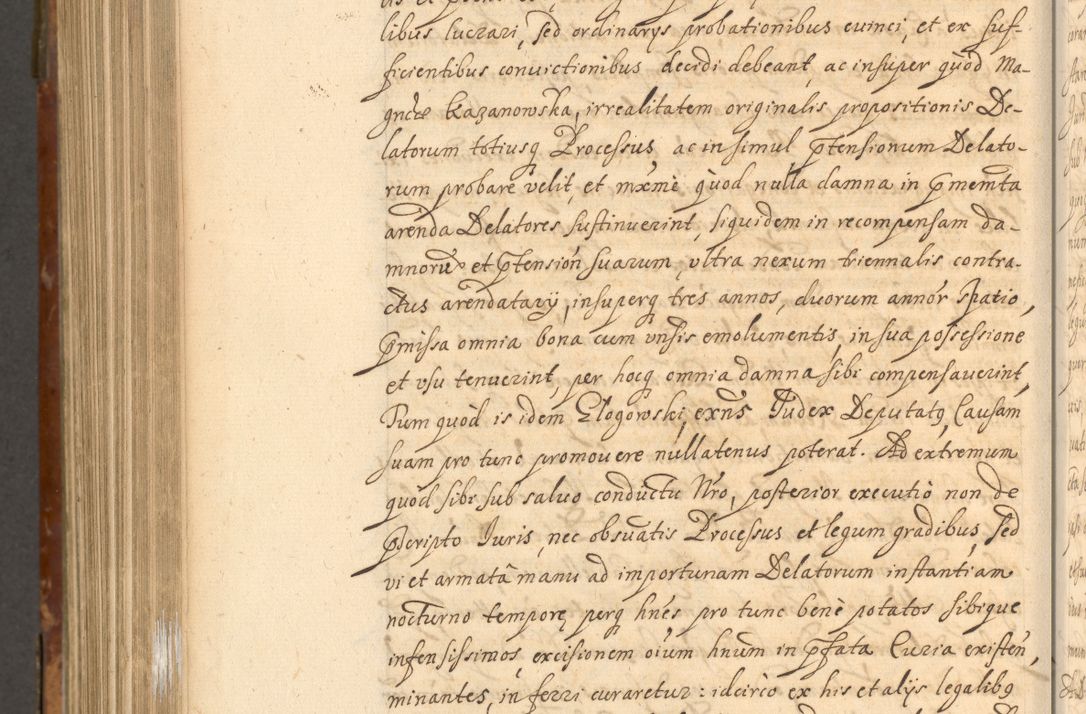 libus lucrari, sed ordinarys probationibus evinci, et ex suf-
ficientibus convictionibus decidi debeant, ac insuper quòd Ma-
gncæ Kazanowska, irrealitatem originalis propositionis De-
latorum totiusq Processus, ac in simul ptensionum Delato-
rum probare velit, et mxmè quòd nulla damna in pmemta
arenda Delatores sustinuerint, siquidem in recompensam da-
mnorũ et ptension suarum, vltra nexum triennalis contra-
ctus arendatarij, insuperq tres annos, duorum annor spatio,
pmissa omnia bona cum vnisis emolumentis, in sua possessione
et vsu tenuerint, per hocq omnia damna sibi compensaverint,
Tum quòd is idem Głogowski, exñs Judex Deputatq, Causam
suam pro tunc promovere nullatenus poterat. Ad extremum
quòd sibi sub salvo conductu Nro, posterior executio non de
pscripto Iuris, nec obsuatis Processus et legum gradibus, sed
vi et armatâ manu ad importunam Delatorum instantiam
nocturno temporę, perq hnes pro tunc benè potatos sibique
infensissimos, excisionem oium hnum in pfata Curia existen,
minantes, in ferri curaretur: idcirco ex his et alijs legalibq